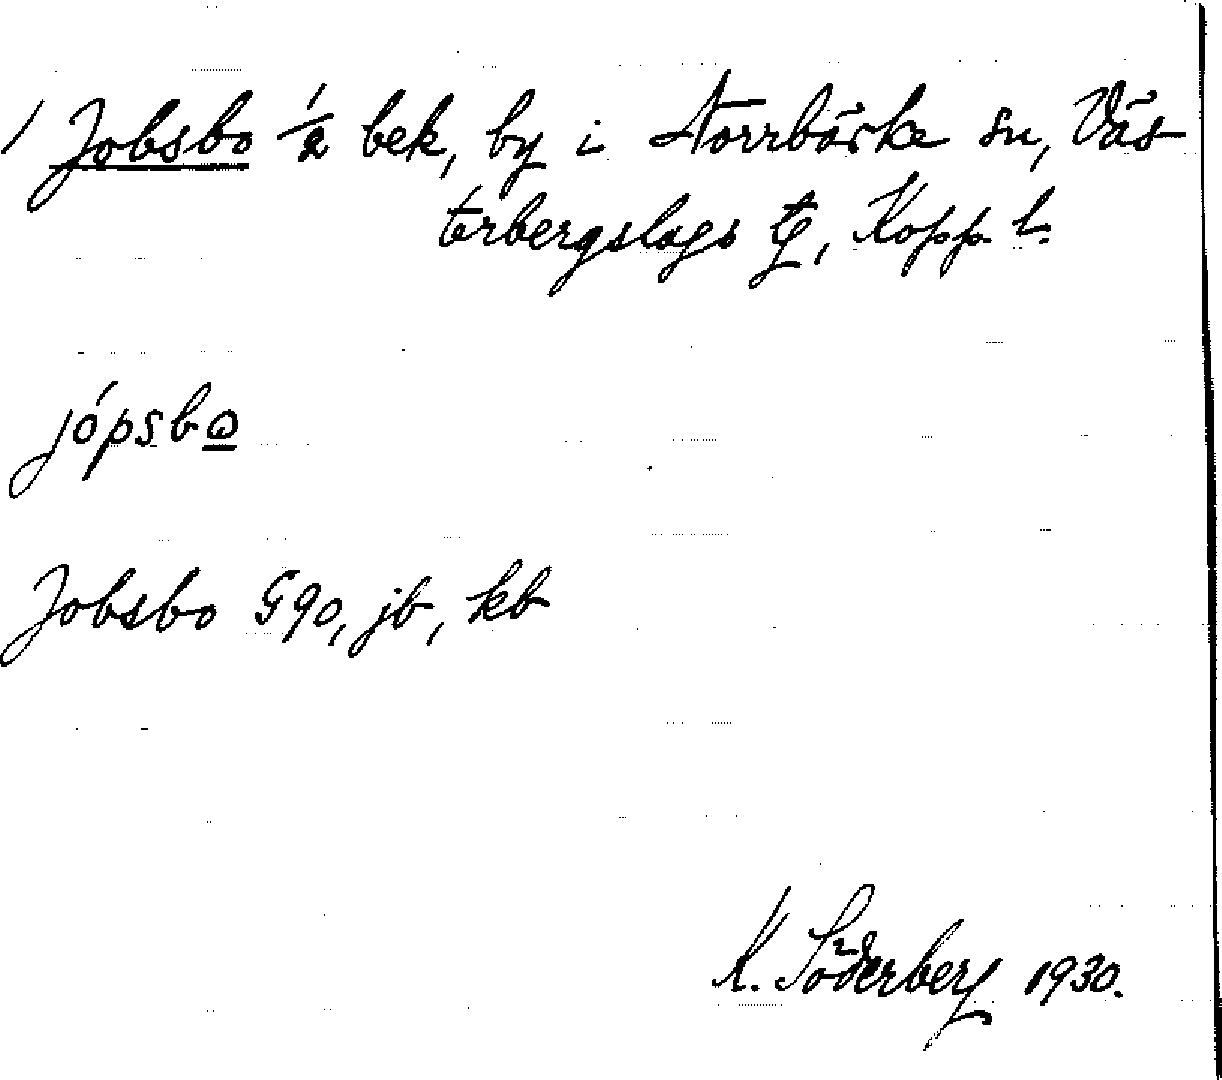 / Jobsbo ½ bek, by i Norrbärke sn, Väs
terbergslags tg, Kopp. l.
jópsbω
Jobsbo G90, jb, kb
K. Söderberg 1930.